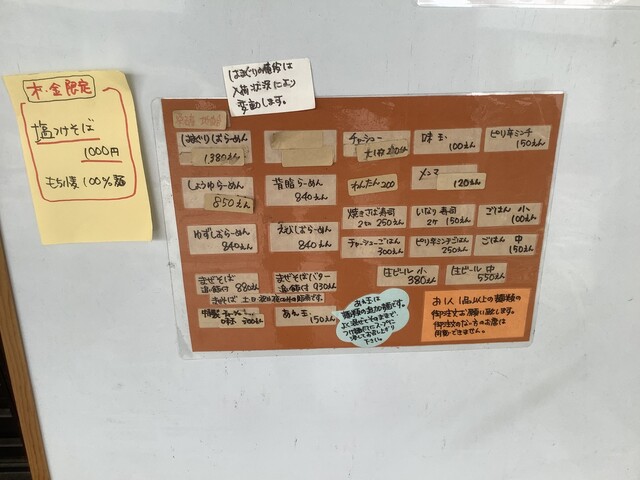 木・金限定
塩つけそば
1000円
もち小麦100%麺
はまぐりの値段は
入荷状況により
変動します。
はまぐりしおらーめん
1380えん
チャーシュー
味玉
100えん
ピリ辛ミンチ
150えん
しょうゆらーめん
850えん
背脂らーめん
840えん
わんたん200
メンマ
120えん
焼きさば寿司
2コ 250えん
いなり寿司
2ケ 150えん
ごはん 小
100えん
ゆずしおらーめん
840えん
えびしおらーめん
840えん
チャーシューごはん
300えん
ピリ辛ミンチごはん
250えん
ごはん 中
150えん
まぜそば
追い飯付 880えん
まぜそばバター
追い飯付 930えん
生ビール 小
380えん
生ビール 中
550えん
あん玉
150えん
あん玉は
お1人1品以上の麺類の
御注文お願い致します。
御注文のない方のお席は
用意できません。